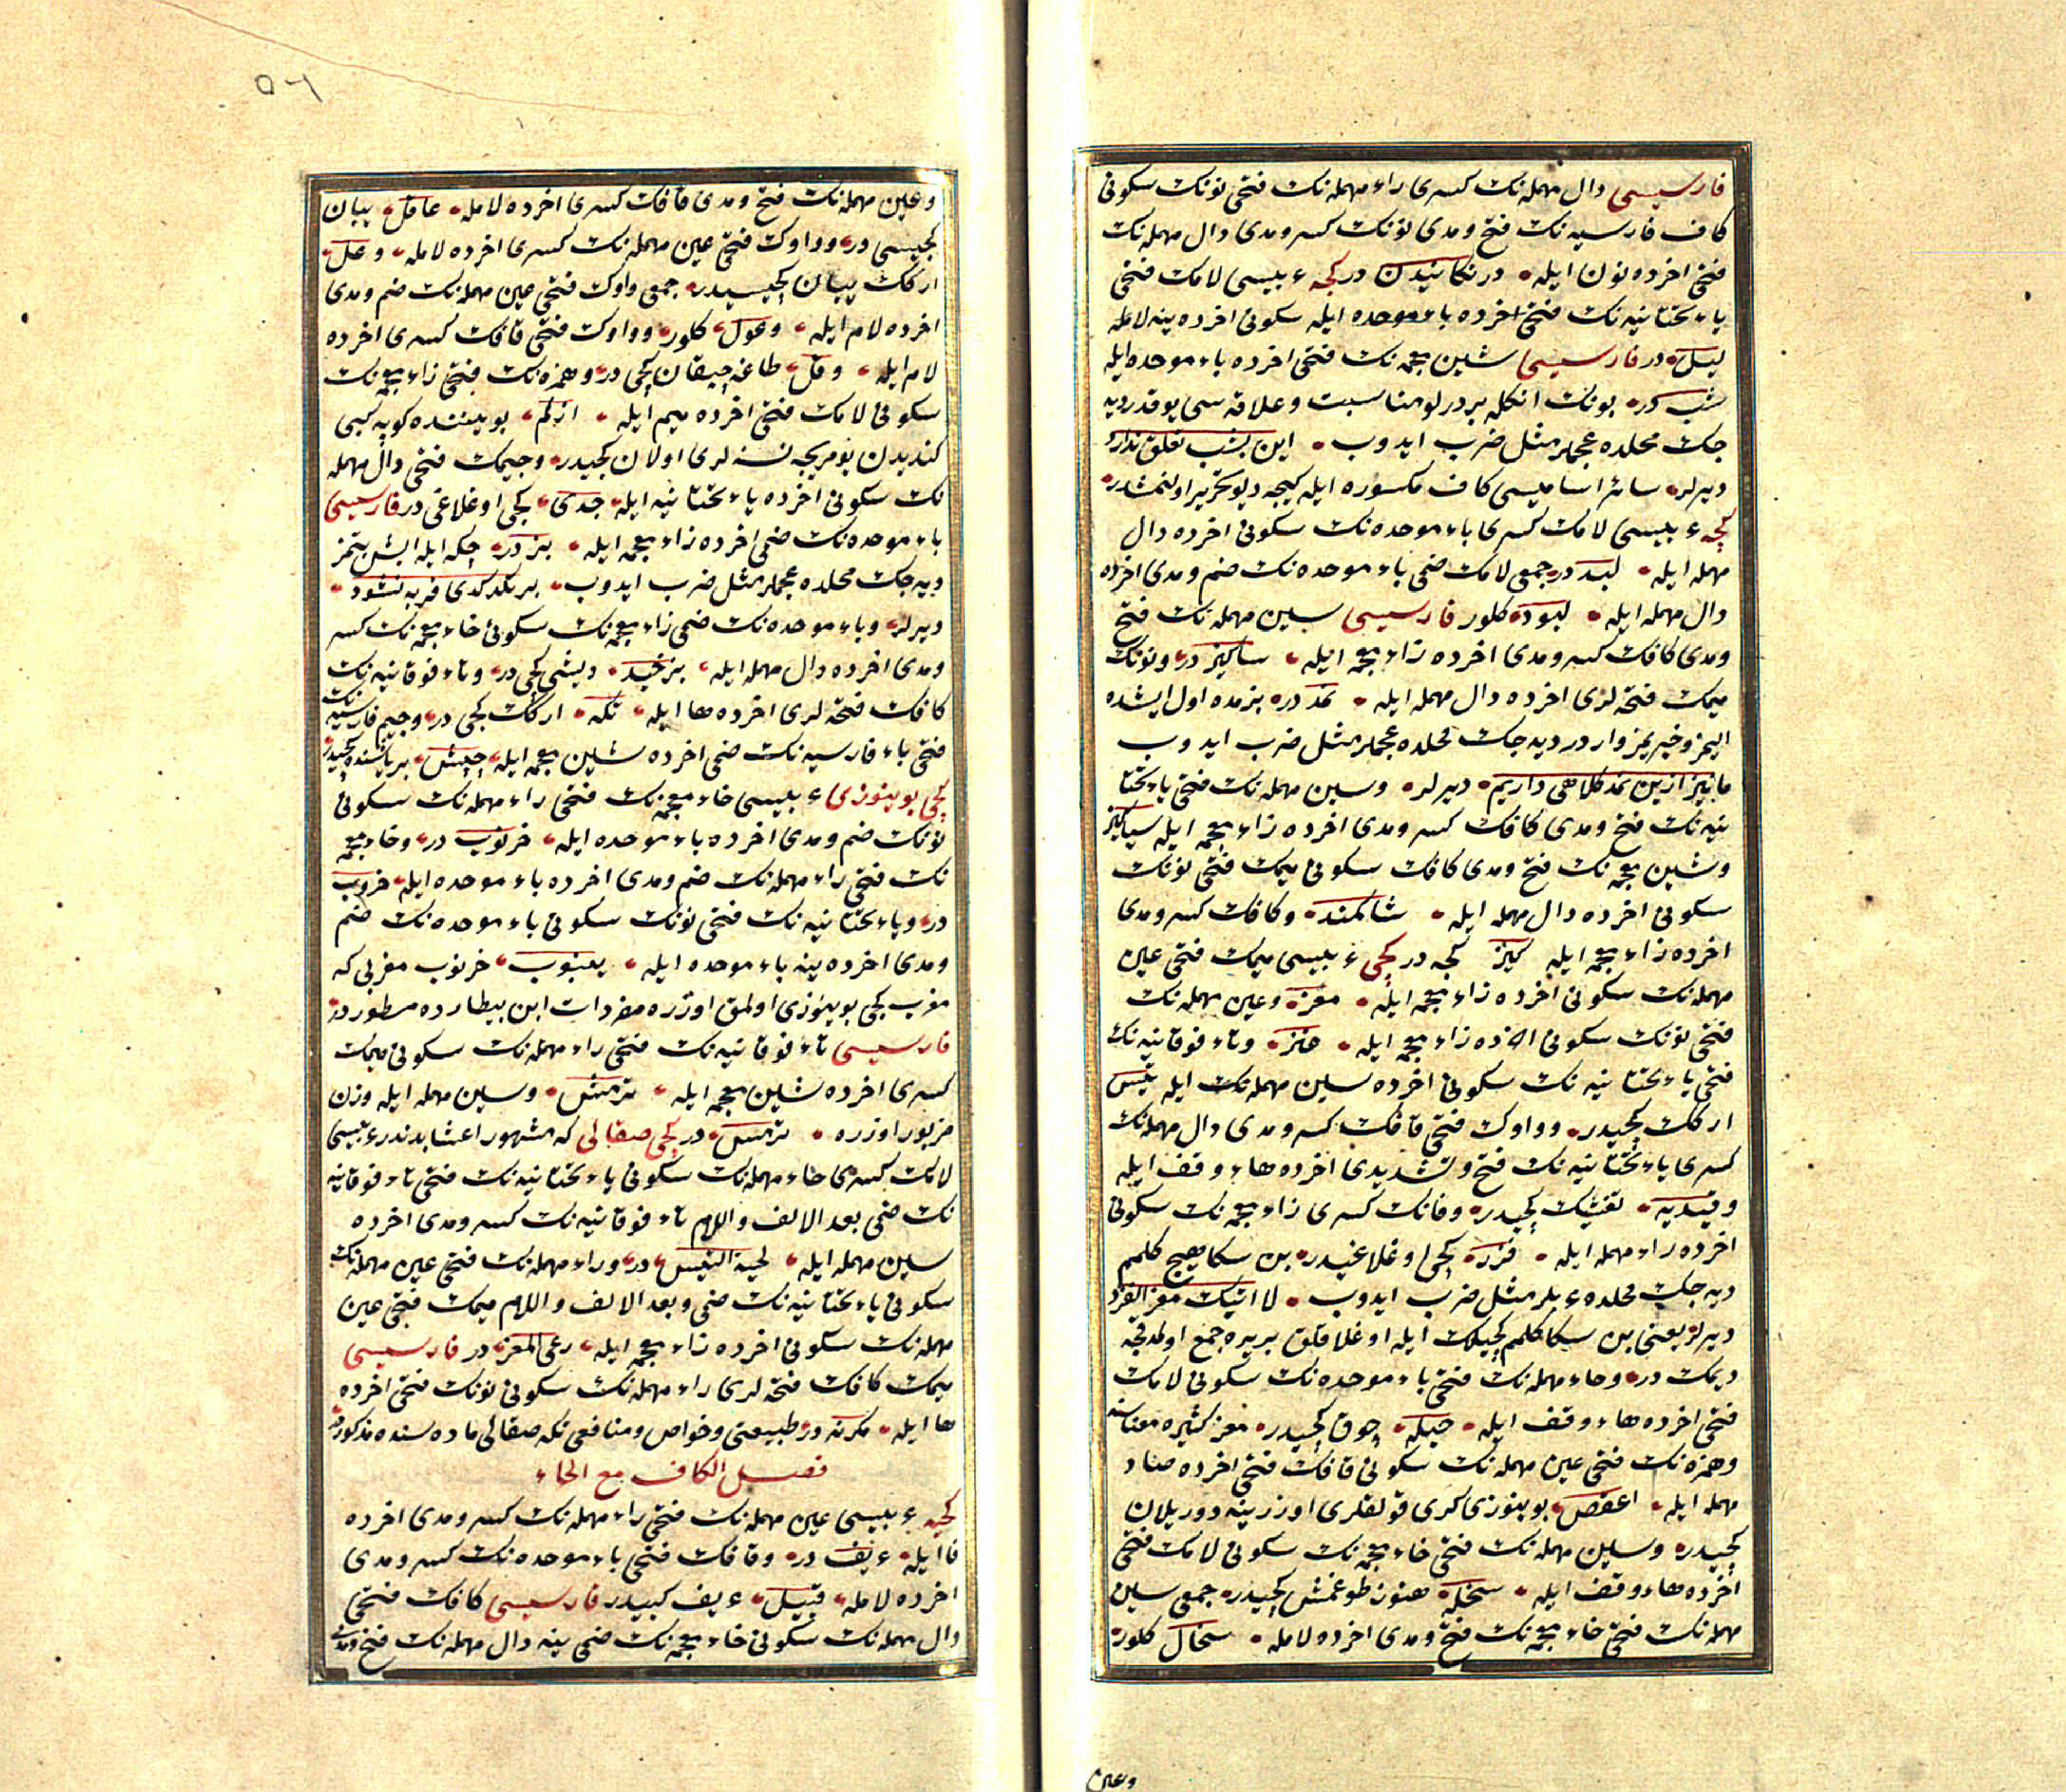 فارسیسی دال مهمله‌نك كسری راء مهمله‌نك فتحی نونك سكونی
كاف فارسیه‌نك فتح ومدی نونك كسر ومدی دال مهمله‌نك
فتحی اخرده نون ایله درنكانیدن در كجه عربیسی لامك فتحی
یاء تحتانیه‌نك فتحی اخرده باء موحده ایله سكونی اخرده ینه لامله
لیل در فارسیسی شین معجمه‌نك فتحی اخرده باء موحده ایله
شب در بونك انكله بر درلو مناسبت وعلاقه‌سی یوقدر دیه
جك محلده عجملر مثل ضرب ایدوب این بشب تعلق ندارد
دیرلر سائر اسامیسی كاف مكسوره ایله كیجه دیو تحریر اولنمشدر
كجه عربیسی لامك كسری باء موحده‌نك سكونی اخرده دال
مهمله ایله لبد در جمعی لامك ضمی باء موحده‌نك ضم ومدی اخرده
دال مهمله ایله لبود كلور فارسیسی سین مهمله‌نك فتح
ومدی كافك كسر ومدی اخرده زاء معجمه ایله ساكیز در ونونك
میمك فتحه‌لری اخرده دال مهمله ایله نمد در بزمده اول ایشده
الیمز وخبریمز واردر دیه‌جك محلده عجملر مثل ضرب ایدوب
ما نیز ازین نمد كلاهی داریم دیرلر وسین مهمله‌نك فتحی یاء تحتا
نیه‌نك فتح ومدی كافك كسر ومدی اخرده زاء معجمه ایله سیاكیز
وشین معجمه‌نك فتح ومدی كافك سكونی میمك فتحی نونك
سكونی اخرده دال مهمله ایله شاكمند وكافك كسر ومدی
اخرده زاء معجمه ایله كیز كجه در كچی عربیسی میمك فتحی عین
مهمله‌نك سكونی اخرده زاء معجمه ایله معز وعین مهمله‌نك
فتحی نونك سكونی اخرده زاء معجمه ایله عنز وتاء فوقانیه‌نك
فتحی یاء تحتانیه‌نك سكونی اخرده سین مهمله‌نك ایله تیس
اركك كچیدر وواوك فتحی قافك كسر ومدی دال مهمله‌نك
كسری یاء تحتانیه‌نك فتح وتشدیدی اخرده هاء وقف ایله
وقیدیه كچیدر وفانك كسری زاء معجمه‌نك سكونی
اخرده راء مهمله ایله فزر كچی اوغلاغیدر بن سكا هیچ كلمم
دیه‌جك محلده عربلر مثل ضرب ایدوب لا اتیك معزی الفزر
دیرلر یعنی بن سكا كلمم كچیلك ایله اوغلاقلق بر یره جمع اولمدقجه
دیمك در وحاء مهمله‌نك فتحی باء موحده‌نك سكونی لامك
فتحی اخرده هاء وقف ایله حبله چوق كچیدر معز كثیره معناسنه
وهمزه‌نك فتحی عین مهمله‌نك سكونی قافك فتحی اخرده صاد
مهمله ایله اعقص بوینوزی كری قولقلری اوزرینه دوریلان
كچیدر وسین مهمله‌نك فتحی خاء معجمه‌نك سكونی لامك فتحی
اخرده هاء وقف ایله سخله هنوز طوغمش كچیدر جمعی سین
مهمله‌نك فتحی خاء معجمه‌نك فتح ومدی اخرده لامله سخال كلور
وعین
٥٦
وعین مهمله‌نك فتح ومدی قافك كسری اخرده لامله عاقل یبان
كچیسی در وواوك فتحی عین مهمله‌نك كسری اخرده لامله وعل
اركك یبان كچیسیدر جمعی واوك فتحی عین مهمله‌نك ضم ومدی
اخرده لام ایله وعول كلور وواوك فتحی قافك كسری اخرده
لام ایله وقل طاغه چیقان كچی در وهمزه‌نك فتحی زاء معجمه‌نك
سكونی لامك فتحی اخرده میم ایله ازلم بویننده كوپه كبی
كندیدن یومریجه نسنه‌لری اولان كچیدر وجیمك فتحی دال مهمله
نك سكونی اخرده یاء تحتانیه ایله جدی كچی اوغلاغی در فارسیسی
باء موحده‌نك ضمی اخرده زاء معجمه ایله بز در چكه ایله ایش بتمز
دیه‌جك محلده عجملر مثل ضرب ایدوب بز بلكدی فربه نشود
دیرلر وباء موحده‌نك ضمی زاء معجمه‌نك سكونی خاء معجمه‌نك كسر
ومدی اخرده دال مهمله ایله بزخید دیشی كچی در وتاء فوقانیه‌نك
كافك فتحه‌لری اخرده ها ایله تكه اركك كچی در وجیم فارسیه‌نك
فتحی باء فارسیه‌نك ضمی اخرده شین معجمه ایله چپش بر یاشنده كچیدر
كچی بوینوزی عربیسی خاء معجمه‌نك فتحی راء مهمله‌نك سكونی
نونك ضم ومدی اخرده باء موحده ایله خرنوب در وخاء معجمه
نك فتحی راء مهمله‌نك ضم ومدی اخرده باء موحده ایله خروب
در ویاء تحتانیه‌نك فتحی نونك سكونی باء موحده‌نك ضم
ومدی اخرده ینه باء موحده ایله ینبوب خرنوب مغربی كه
مغرب كچی بوینوزی اولمق اوزره مفردات ابن بیطارده مسطوردر
فارسیسی تاء فوقانیه‌نك فتحی راء مهمله‌نك سكونی میمك
كسری اخرده شین معجمه ایله ترمش وسین مهمله ایله وزن
مزبور اوزره ترمس در كچی صقالی كه مشهور اعشابدندر عربیسی
لامك كسری حاء مهمله‌نك سكونی یاء تحتانیه‌نك فتحی تاء فوقانیه
نك ضمی بعد الالف واللام تاء فوقانیه‌نك كسر ومدی اخرده
سین مهمله ایله لحیة التیس در وراء مهمله‌نك فتحی عین مهمله‌نك
سكونی یاء تحتانیه‌نك ضمی وبعد الالف واللام میمك فتحی عین
مهمله‌نك سكونی اخرده زاء معجمه ایله رعی المعز در فارسیسی
میمك كافك فتحه‌لری راء مهمله‌نك سكونی نونك فتحی اخرده
ها ایله مكرنه در طبیعتی وخواص ومنافعی تكه صقالی ماده‌سنده مذكوردر
فصل الكاف مع الحاء
كحیه عربیسی عین مهمله‌نك فتحی راء مهمله‌نك كسر ومدی اخرده
فا ایله عریف در وقافك فتحی باء موحده‌نك كسر ومدی
اخرده لامله قبیل عریف كبیدر فارسیسی كافك فتحی
دال مهمله‌نك سكونی خاء معجمه‌نك ضمی ینه دال مهمله‌نك فتح ومدی